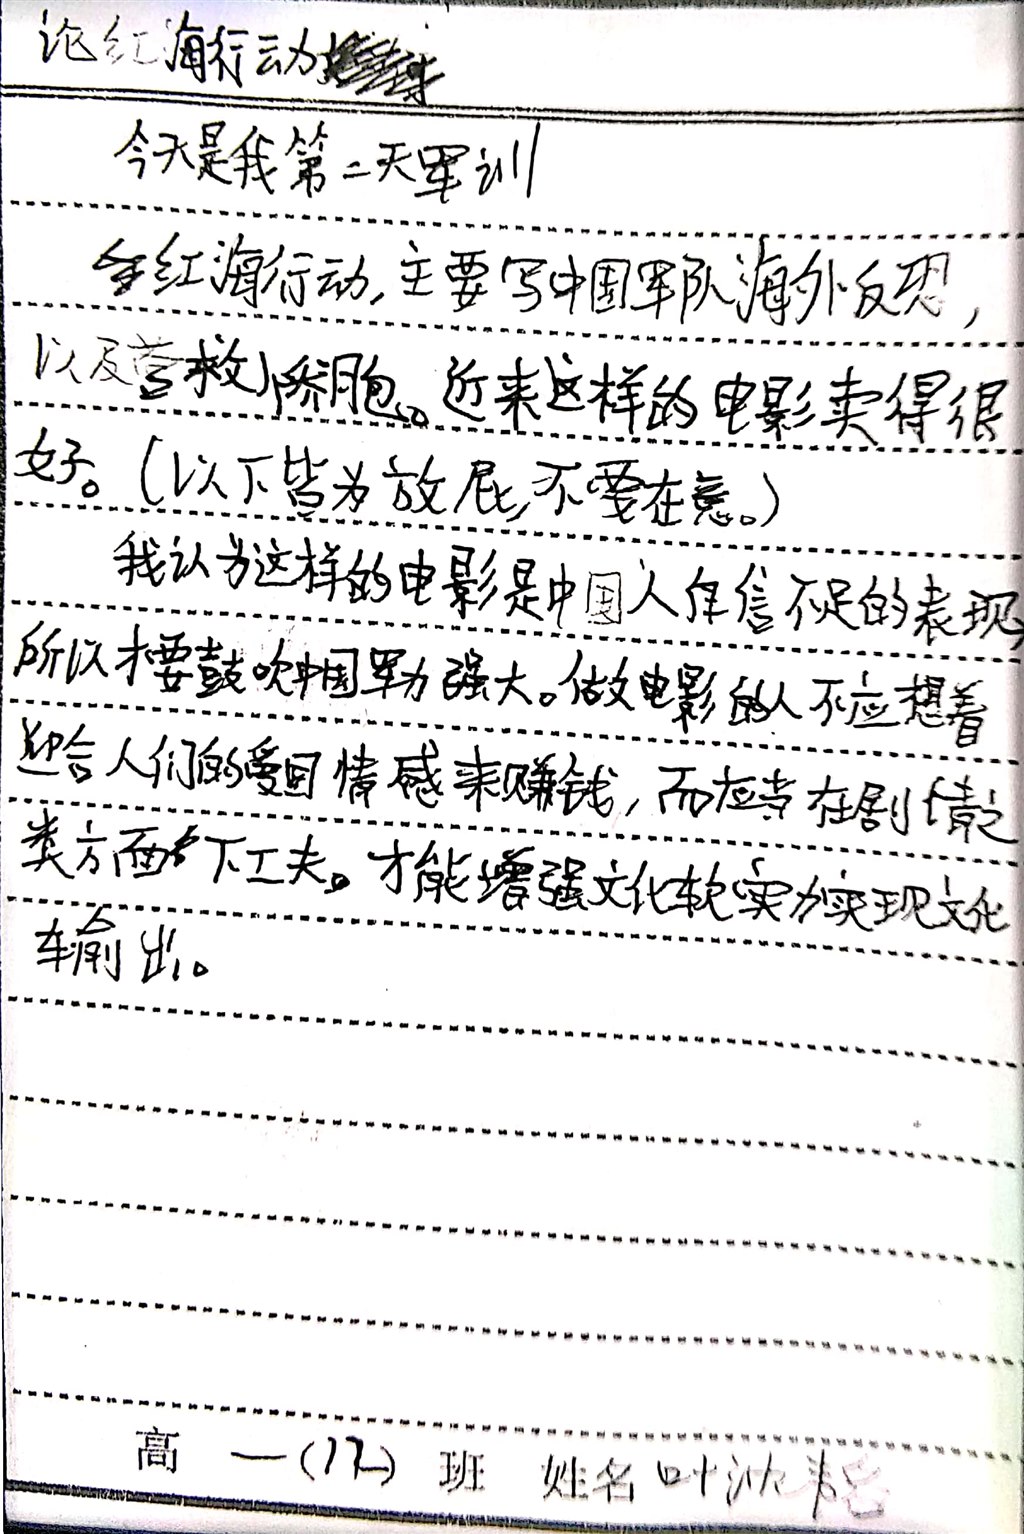 论红海行动
今天是我第二天军训
红海行动,主要写中国军队海外反恐,
以及营救侨胞。近来这样的电影卖得很
好。(以下皆为放屁,不要在意。)
我认为这样的电影是中国人自信不足的表现,
所以才要鼓吹中国军力强大。做电影的人不应想着
迎合人们的爱国情感来赚钱,而应当在剧情之
类方面下工夫。才能增强文化软实力实现文化
输出。
高一(12)班 姓名 叶沈